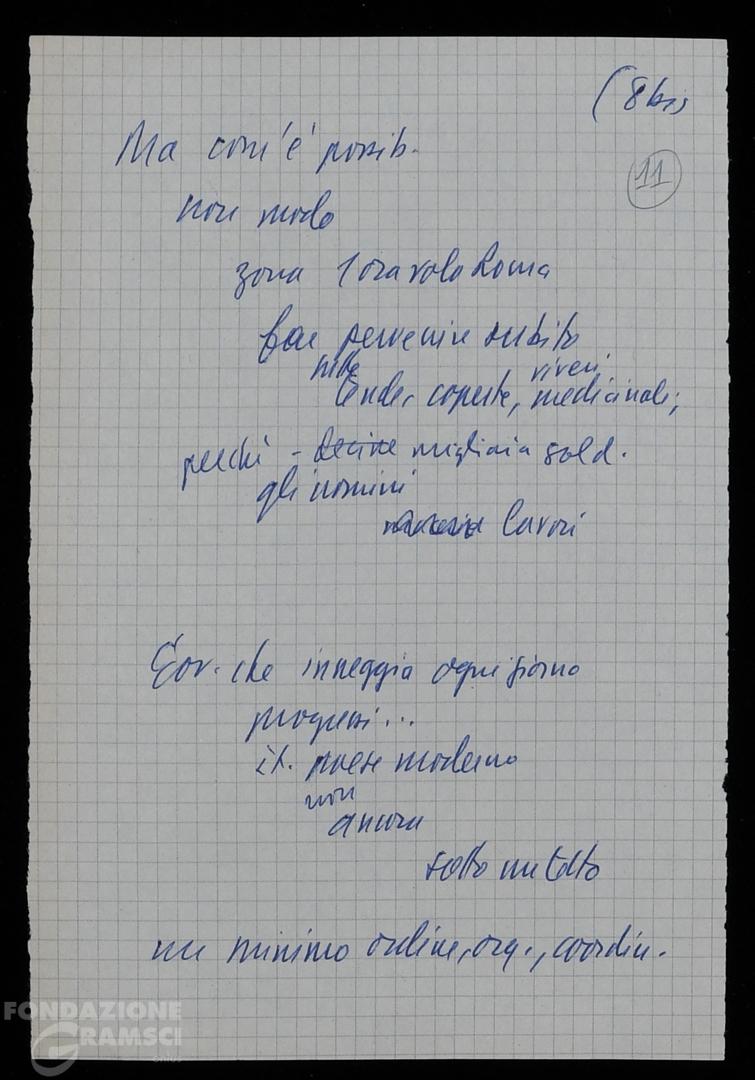 (8 bis
11
Ma com'è possib.
non modo
zona 1 ora volo Roma
far pervenire subito
mille viveri,
tende, coperte, medicinali;
perché - decine migliaia sold.
gli uomini
lavori
Gov. che inneggia ogni giorno
progressi...
it. paese moderno
non
ancora
sotto un tetto
un minimo ordine, org., coordin.
FONDAZIONE
GRAMSCI